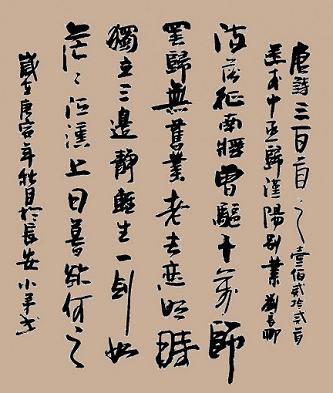 唐詩三百首之壹佰貳拾貳首
送李中丞歸漢陽別業 劉長卿
流落征南將曾驅十萬師
罷歸無舊業老去恋明時
獨立三邊靜輕生一劍知
茫〻江漢上日暮欲何之
歲在庚寅年秋月於長安 小平书